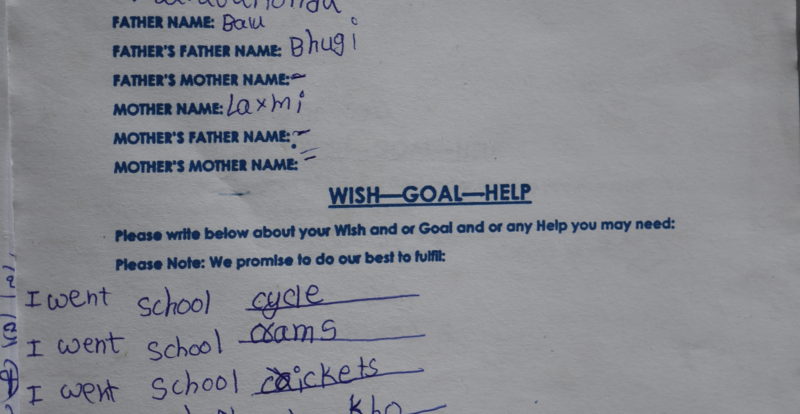 FATHER NAME: Balu
FATHER'S FATHER NAME: Bhugi
FATHER'S MOTHER NAME:-
MOTHER NAME: Laxmi
MOTHER'S FATHER NAME: -
MOTHER'S MOTHER NAME: =
WISH—GOAL—HELP
Please write below about your Wish and or Goal and or any Help you may need:
Please Note: We promise to do our best to fulfil:
I went school cycle
I went school exams
I went school crickets
Kho